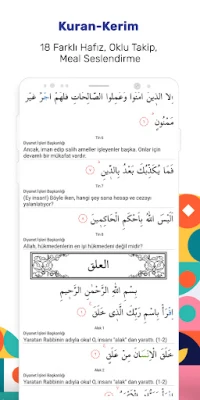 Kuran-Kerim
18 Farklı Hafız, Oklu Takip,
Meal Seslendirme
اِلَّا الَّذِينَ اٰمَنُوا وَعَمِلُوا الصَّالِحَاتِ فَلَهُمْ اَجْرٌ غَيْرُ
مَمْنُونٍ
Tin 6
Diyanet İşleri Başkanlığı
Ancak, iman edip salih ameller işleyenler başka. Onlar için
devamlı bir mükafat vardır.
فَمَا يُكَذِّبُكَ بَعْدُ بِالدِّينِ
Tin 7
Diyanet İşleri Başkanlığı
(Ey insan!) Böyle iken, hangi şey sana hesap ve cezayı
yalanlatıyor?
اَلَيْسَ اللّٰهُ بِاَحْكَمِ الْحَاكِمِينَ
Tin 8
Diyanet İşleri Başkanlığı
Allah, hükmedenlerin en iyi hükmedeni değil midir?
العلق
بِسْمِ اللّٰهِ الرَّحْمٰنِ الرَّحِيمِ
اِقْرَأْ بِاسْمِ رَبِّكَ الَّذِي خَلَقَ
Alak 1
Diyanet İşleri Başkanlığı
Yaratan Rabbinin adıyla oku! O, insanı "alak" dan yarattı. (1-2)
خَلَقَ الْاِنْسَانَ مِنْ عَلَقٍ
Alak 2
Diyanet İşleri Başkanlığı
Yaratan Rabbinin adıyla oku! O, insanı "alak" dan yarattı. (1-2)